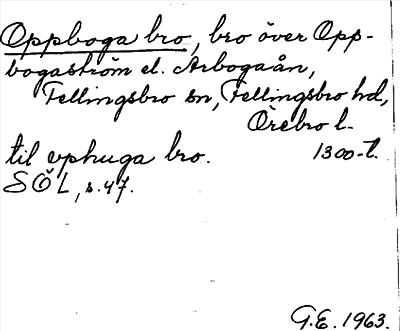 Oppboga bro, bro över Opp-
bogaström el. Arbogaån,
Fellingsbro sn, Fellingsbro hd,
Örebro l.
til vphuga bro. 1300-t.
SÖL, s. 47.
G.E. 1963.